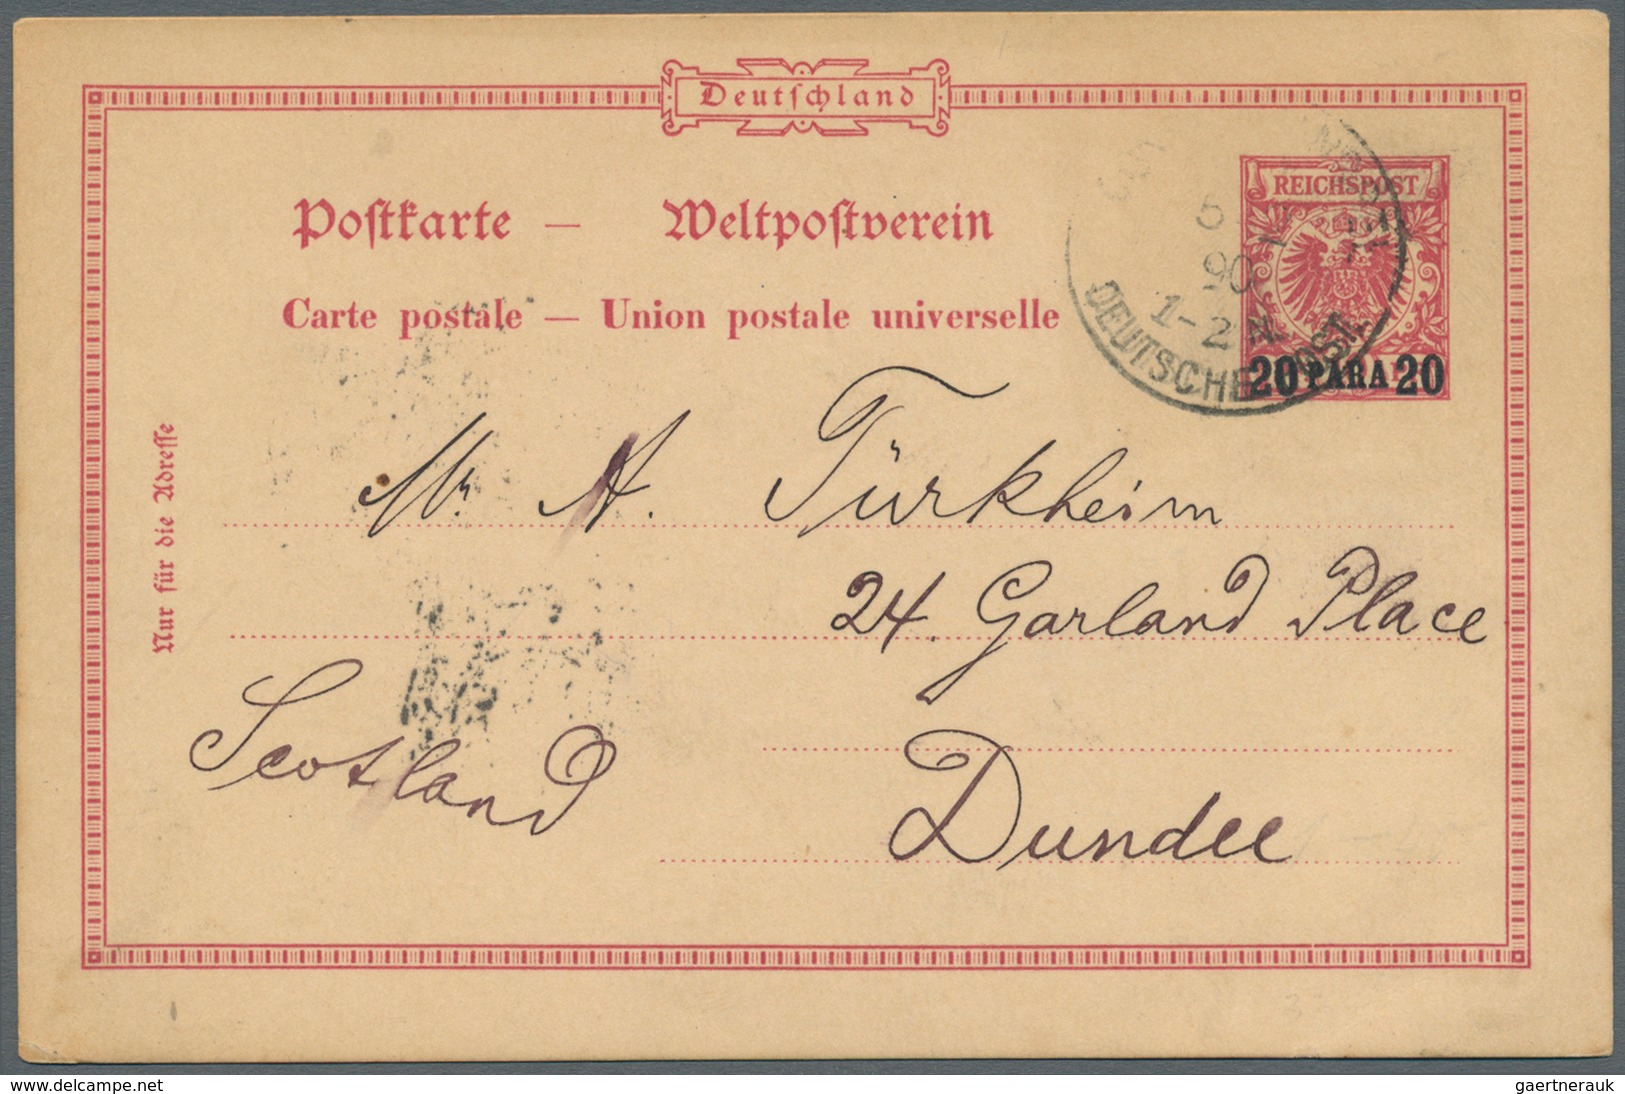 Deutſchland
REICHSPOST
Poſtkarte — Weltpoſtverein
Carte postale — Union postale universelle
5
90
1-2 N
DEUTSCHE POST
20 PARA 20
Nur für die Adreſſe
Mr. A. Türkheim
24. Garland Place
Scotland
Dundee
www.delcampe.net
gaertnerauk